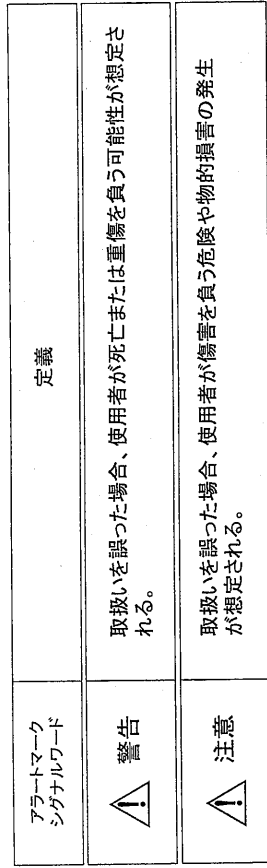 アラートマーク
シグナルワード
定義
警告
取扱いを誤った場合、使用者が死亡または重傷を負う可能性が想定さ
れる。
注意
取扱いを誤った場合、使用者が傷害を負う危険や物的損害の発生
が想定される。